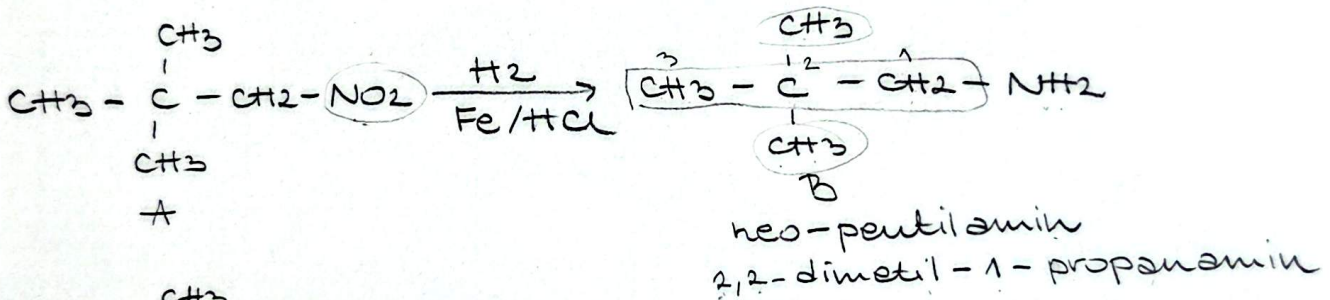 CH3 CH3
CH3 - C - CH2 - NO2 H2 Fe/HCl 3 CH3 - C 2 - CH2 1 - NH2
CH3 CH3
A B
neo-pentilamin
2,2-dimetil-1-propanamin
CH3